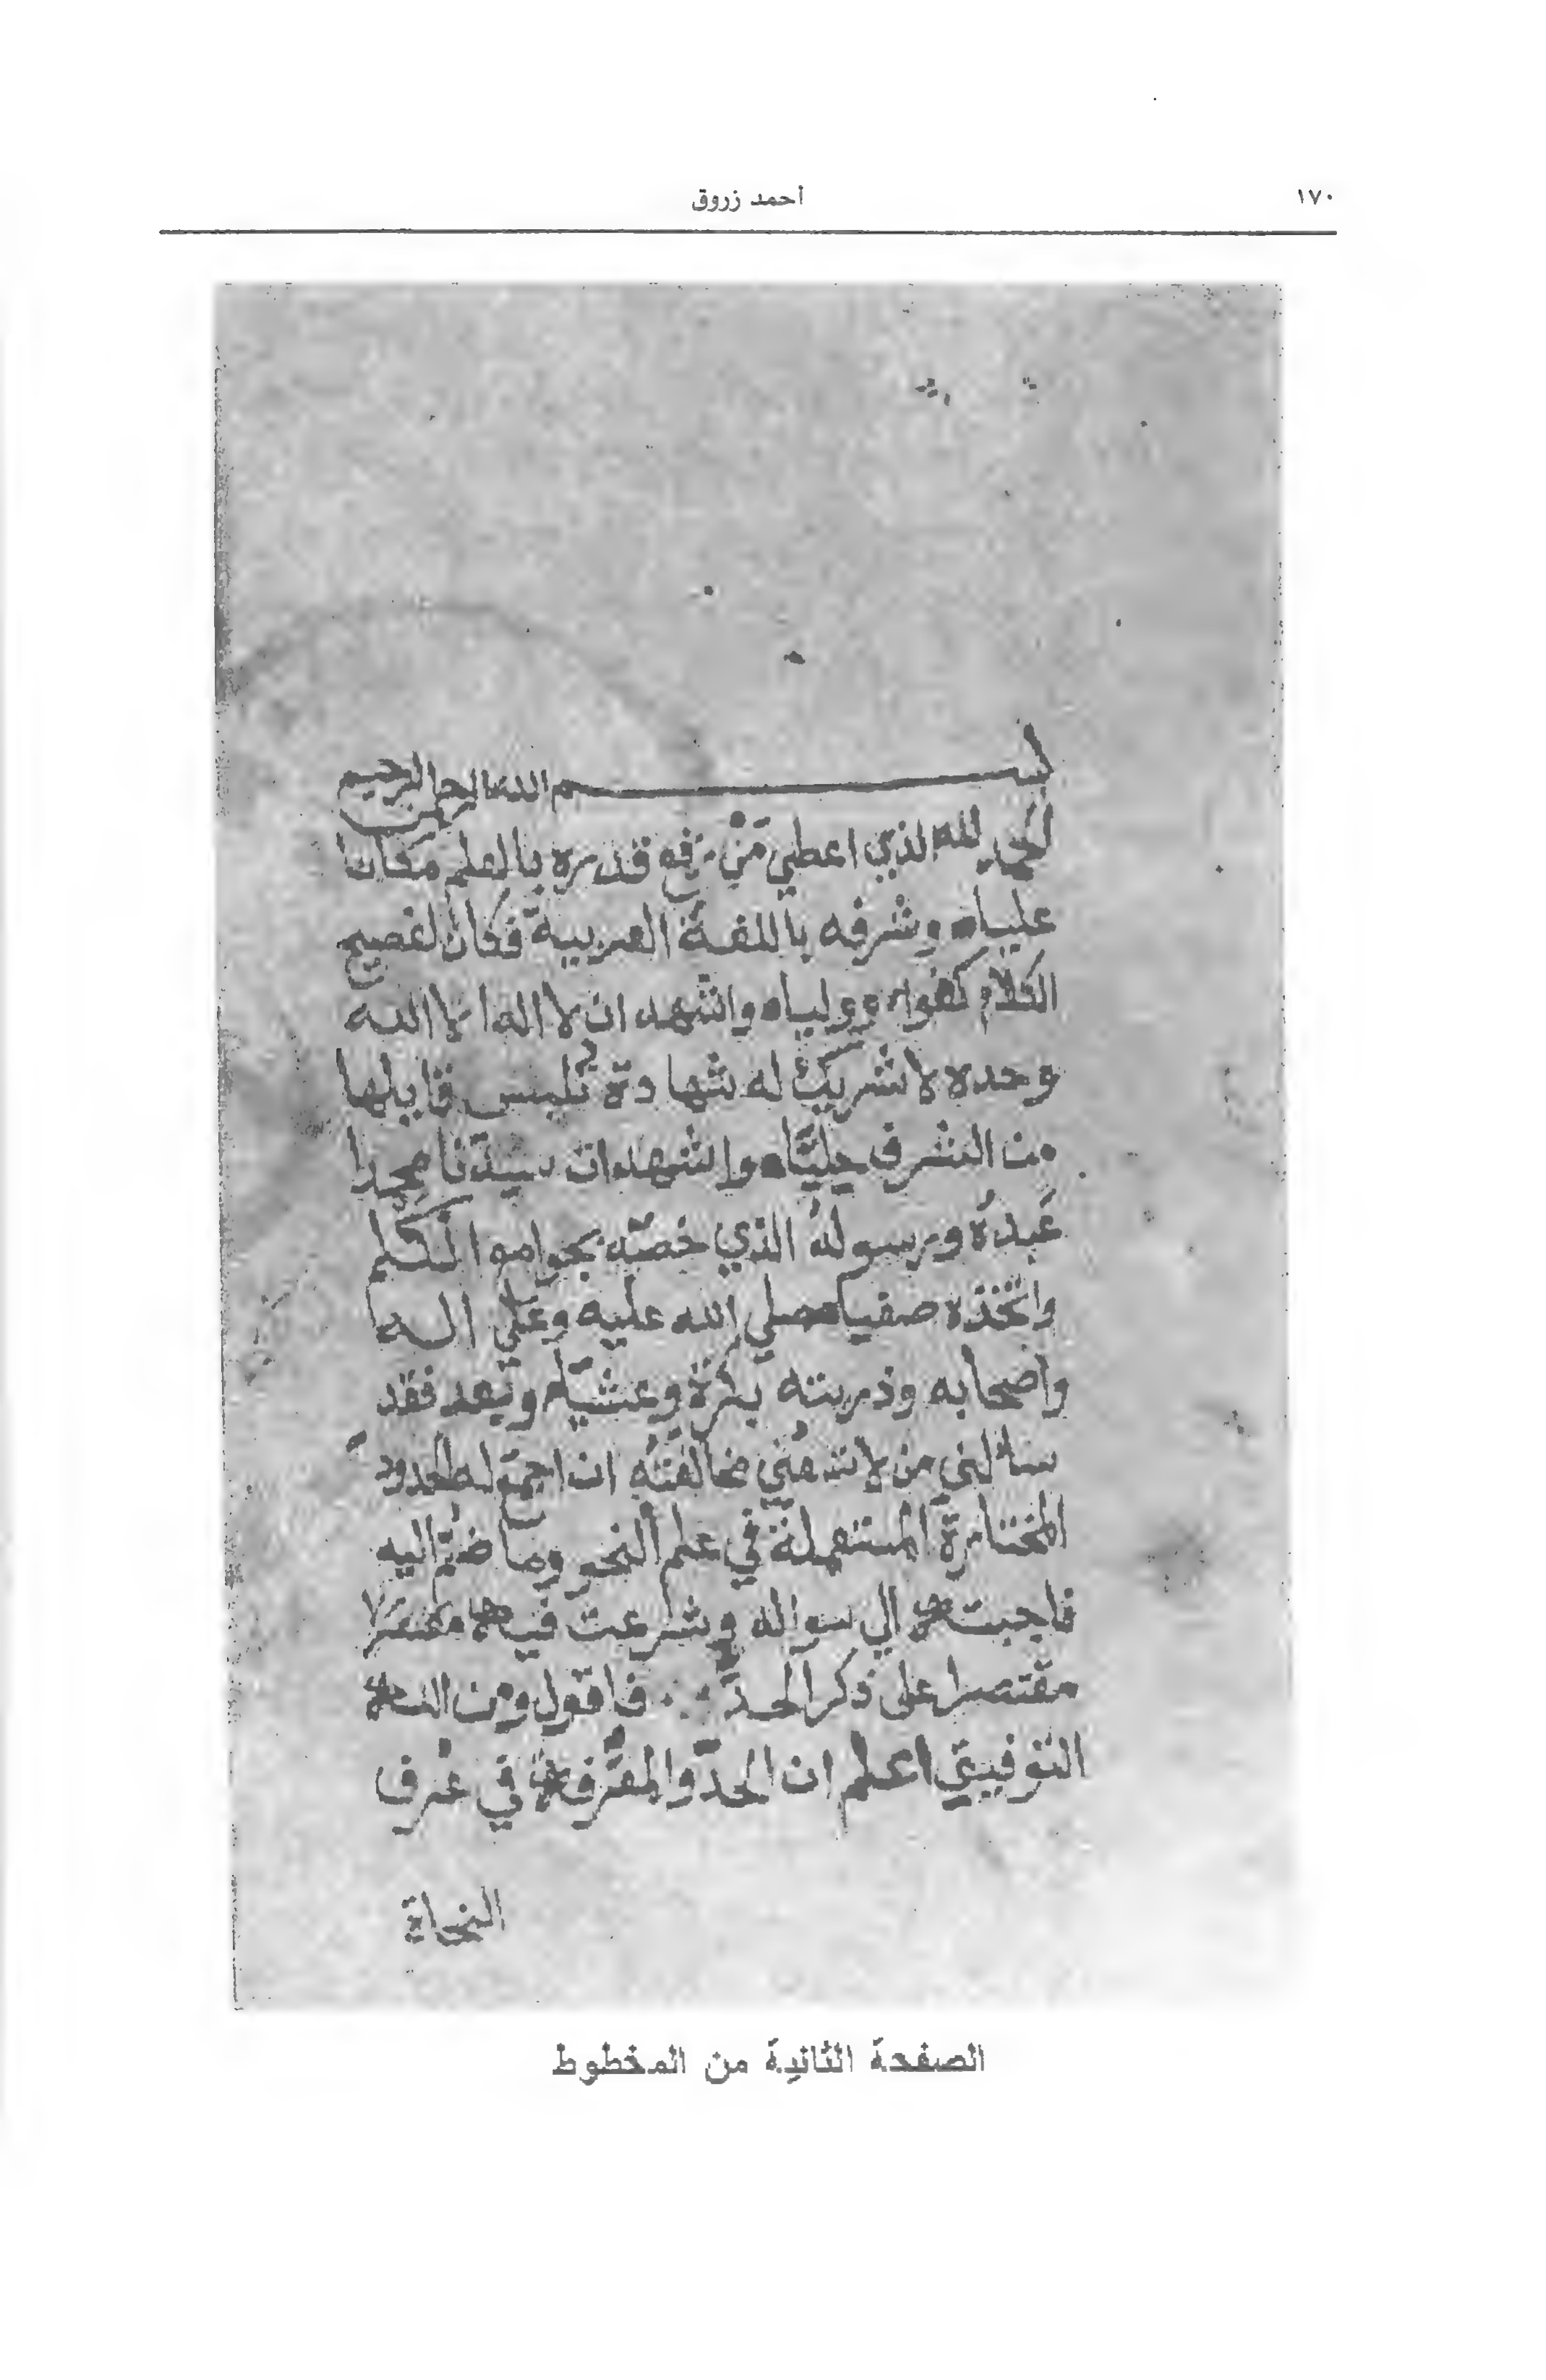 ١٧٠
أحمد زروق
بسم الله الرحمن الرحيم
الحمد لله الذي اعطي مَنْ رفع قدره بالعلم مكانا
عليا وشرفه باللغة العربية فكان لفصيح
الكلام كفوا ووليا واشهد ان لا اله الا الله
وحده لا شريك له شهادة تُلبس قايلها
من الشرف حليّا واشهد ان سيّدنا محمدا
عَبدُه ورسولهُ الذي خصّه بجوامع الكلم
واتخذه صفيا صلي الله عليه وعلي اله
واصحابه وذريته بكرة وعشيّا وبعد فقد
سألني من لا تسعُني مخالفتُه ان اجمع له الحدود
المختارة المستعملة في علم النحو وما ضُمّ اليه
فاجبته الي سواله وشرعت فيه
مقتصرا على ذكر الحدّ فاقول ومن الله
التوفيق اعلم ان الحدّ والمعرّف في عُرف
النحاة
الصفحة الثانية من المخطوط